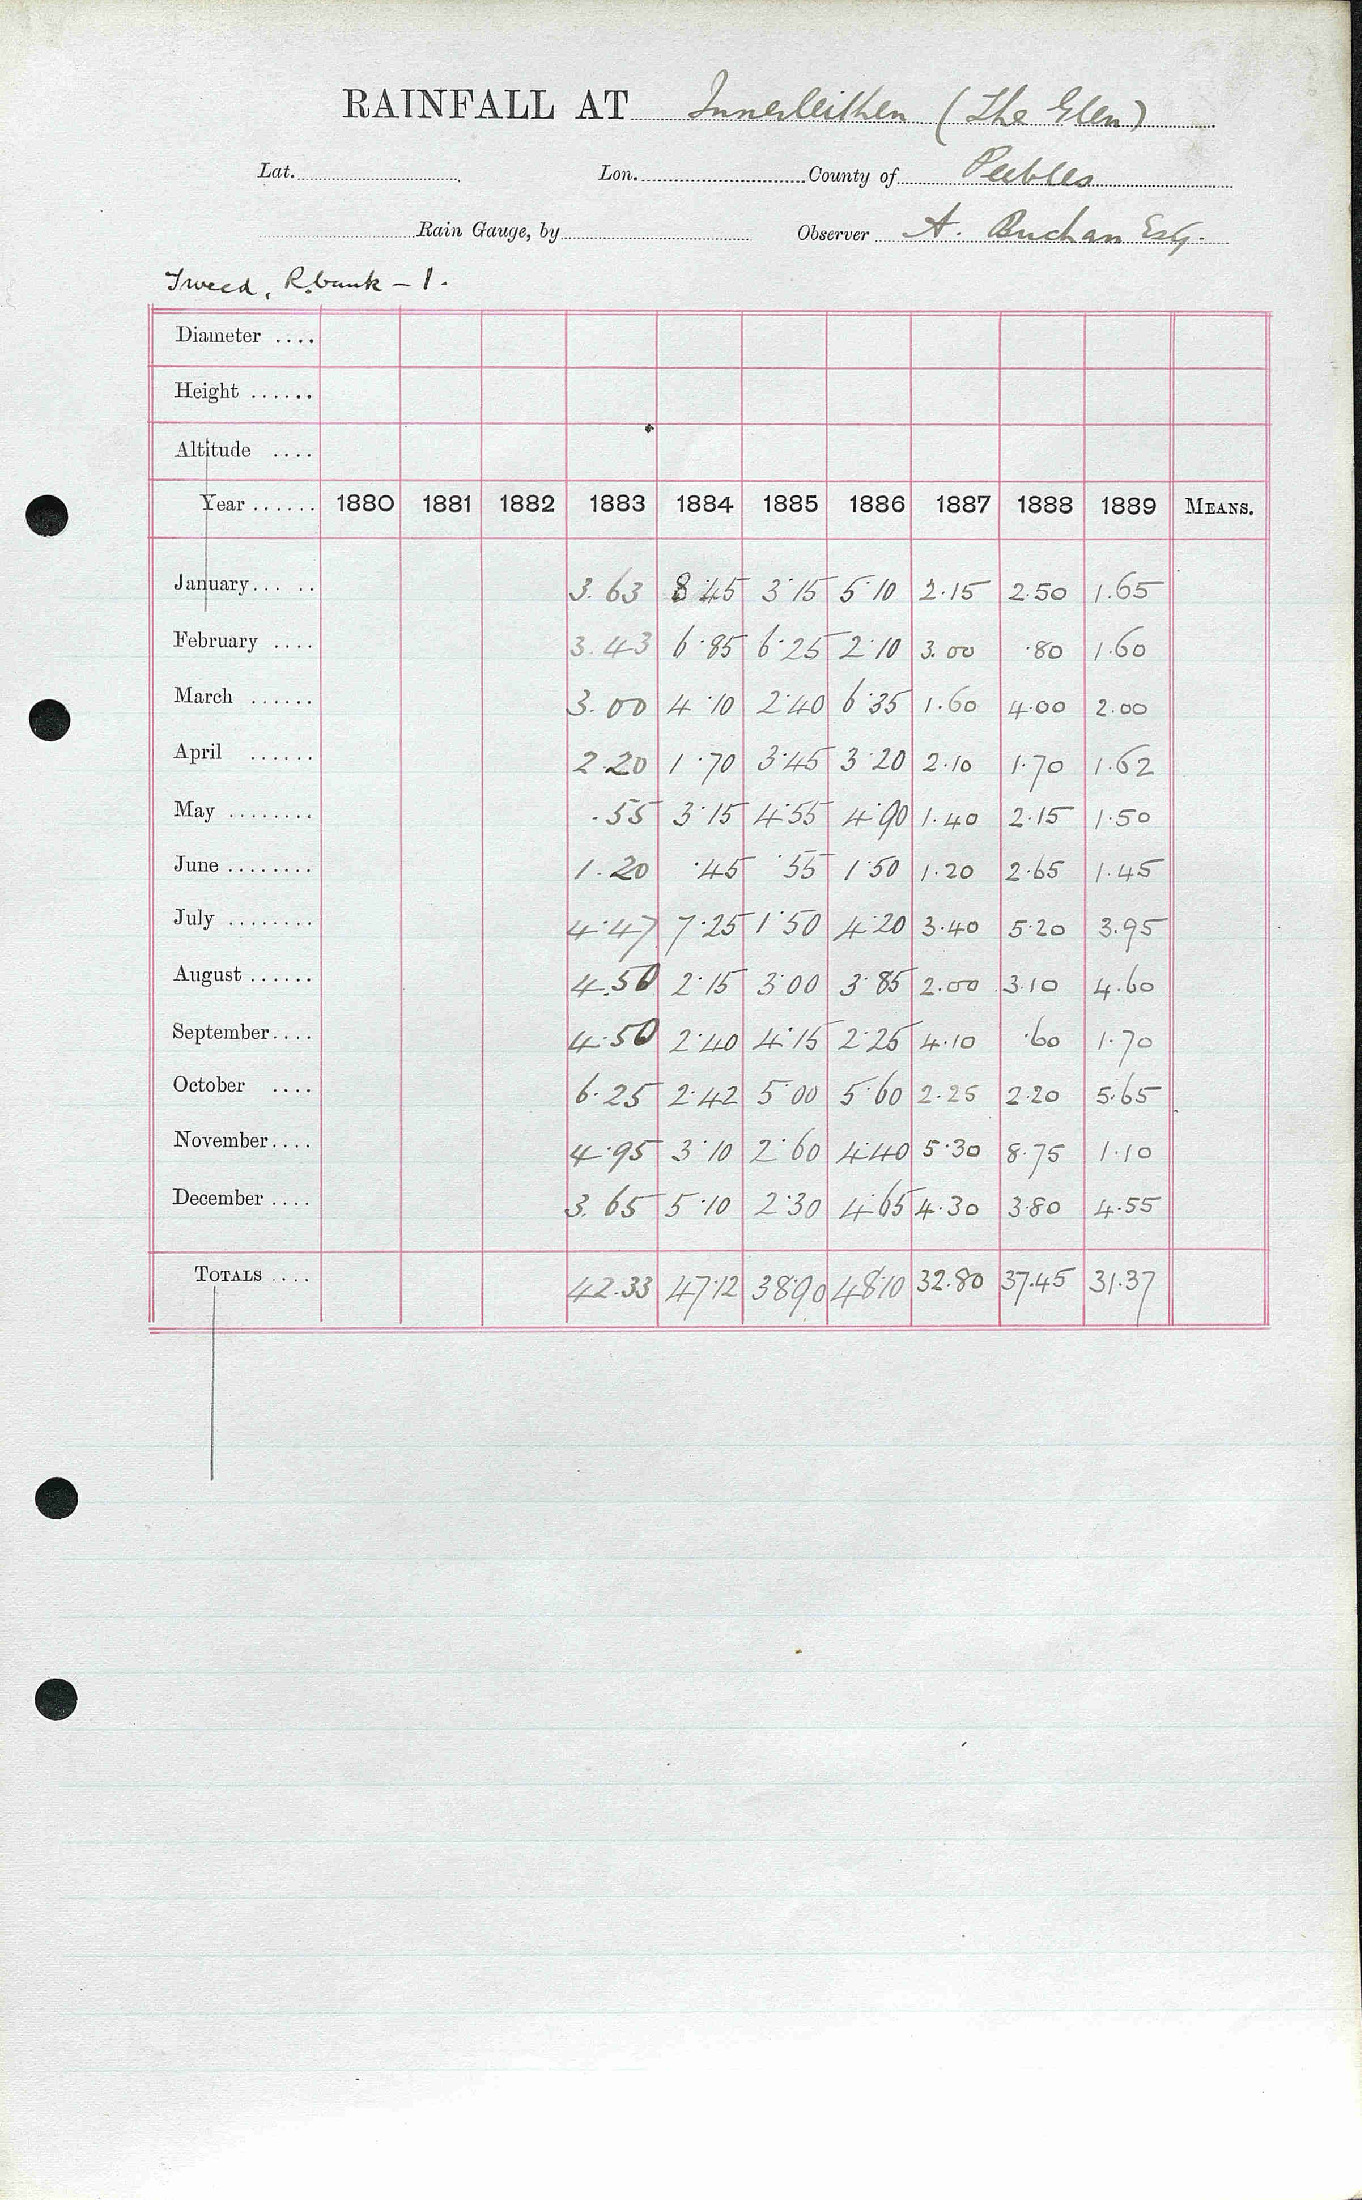 RAINFALL AT Innerleithen (The Glen)
Lat. Lon. County of Peebles
Rain Gauge, by Observer A. Buchan Esq.
Tweed, R. bank - 1.
Diameter ....
Height ......
Altitude ....
Year ...... 1880 1881 1882 1883 1884 1885 1886 1887 1888 1889 MEANS.
January... .. 3.63 8.45 3.15 5.10 2.15 2.50 1.65
February .... 3.43 6.85 6.25 2.10 3.00 .80 1.60
March ...... 3.00 4.10 2.40 6.35 1.60 4.00 2.00
April ...... 2.20 1.70 3.45 3.20 2.10 1.70 1.62
May ........ .55 3.15 4.55 4.90 1.40 2.15 1.50
June ........ 1.20 .45 .55 1.50 1.20 2.65 1.45
July ........ 4.47 7.25 1.50 4.20 3.40 5.20 3.95
August ...... 4.50 2.15 3.00 3.85 2.00 3.10 4.60
September.... 4.50 2.40 4.15 2.25 4.10 .60 1.70
October .... 6.25 2.42 5.00 5.60 2.25 2.20 5.65
November.... 4.95 3.10 2.60 4.40 5.30 8.75 1.10
December .... 3.65 5.10 2.30 4.65 4.30 3.80 4.55
TOTALS .... 42.33 47.12 38.90 48.10 32.80 37.45 31.37